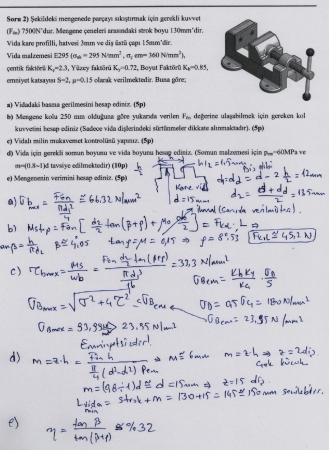 Soru 2) Şekildeki mengenede parçayı sıkıştırmak için gerekli kuvvet
(Fön) 7500N'dur. Mengene çeneleri arasındaki strok boyu 130mm'dir.
Vida kare profilli, hatvesi 3mm ve diş üstü çapı 15mm'dir.
Vida malzemesi E295 (σak = 295 N/mm², σy em= 360 N/mm²),
çentik faktörü Kç=2.3, Yüzey faktörü Ky=0.72, Boyut Faktörü Kb=0.85,
emniyet katsayısı S=2, μ=0.15 olarak verilmektedir. Buna göre;
a) Vidadaki basma gerilmesini hesap ediniz. (5p)
b) Mengene kolu 250 mm olduğuna göre yukarıda verilen Fön değerine ulaşabilmek için gereken kol
kuvvetini hesap ediniz (Sadece vida dişlerindeki sürtünmeler dikkate alınmaktadır). (5p)
c) Vidalı milin mukavemet kontrolünü yapınız. (5p)
d) Vida için gerekli somun boyunu ve vida boyunu hesap ediniz. (Somun malzemesi için pem=60MPa ve
m=(0.8÷1)d tavsiye edilmektedir) (10p)
e) Mengenenin verimini hesap ediniz. (5p)
h/2 = 1,5mm
Diş dibi
d1 = d - 2 h/2 = 12mm
Kare vida
d = 15mm
d2 = (d + d1)/2 = 13.5mm
a) σb max = Fön / (πd1²/4) ≅ 66.32 N/mm²
b) Mst,p = Fön [ d2/2 tan(β+ρ) + μo
] = Fkol · L
tanβ = h/πd2 β ≅ 4,05 tanρ = μ = 0,15 ⇒ ρ = 8°.53
c) τbmax = Ms/Wb =
= 33,3 N/mm²
σBem = Kb Ky / Kç · σD/S
σBmax = √σ² + 4τ² ≤ σBem
Emniyetsizdir!
d) m = z·h = Fön·h / (π/4 (d²-d1²) Pem) ⇒ m ≅ 6mm m = z·h ⇒ z = 2 diş
çok küçük
m = (0,8÷1)d ≅ d = 15mm ⇒ z = 15 diş
Lvida min = strok + m = 130+15 = 145 ≅ 150mm seçilebilir.
e) η = tan β / tan(β+ρ) ≅ %32